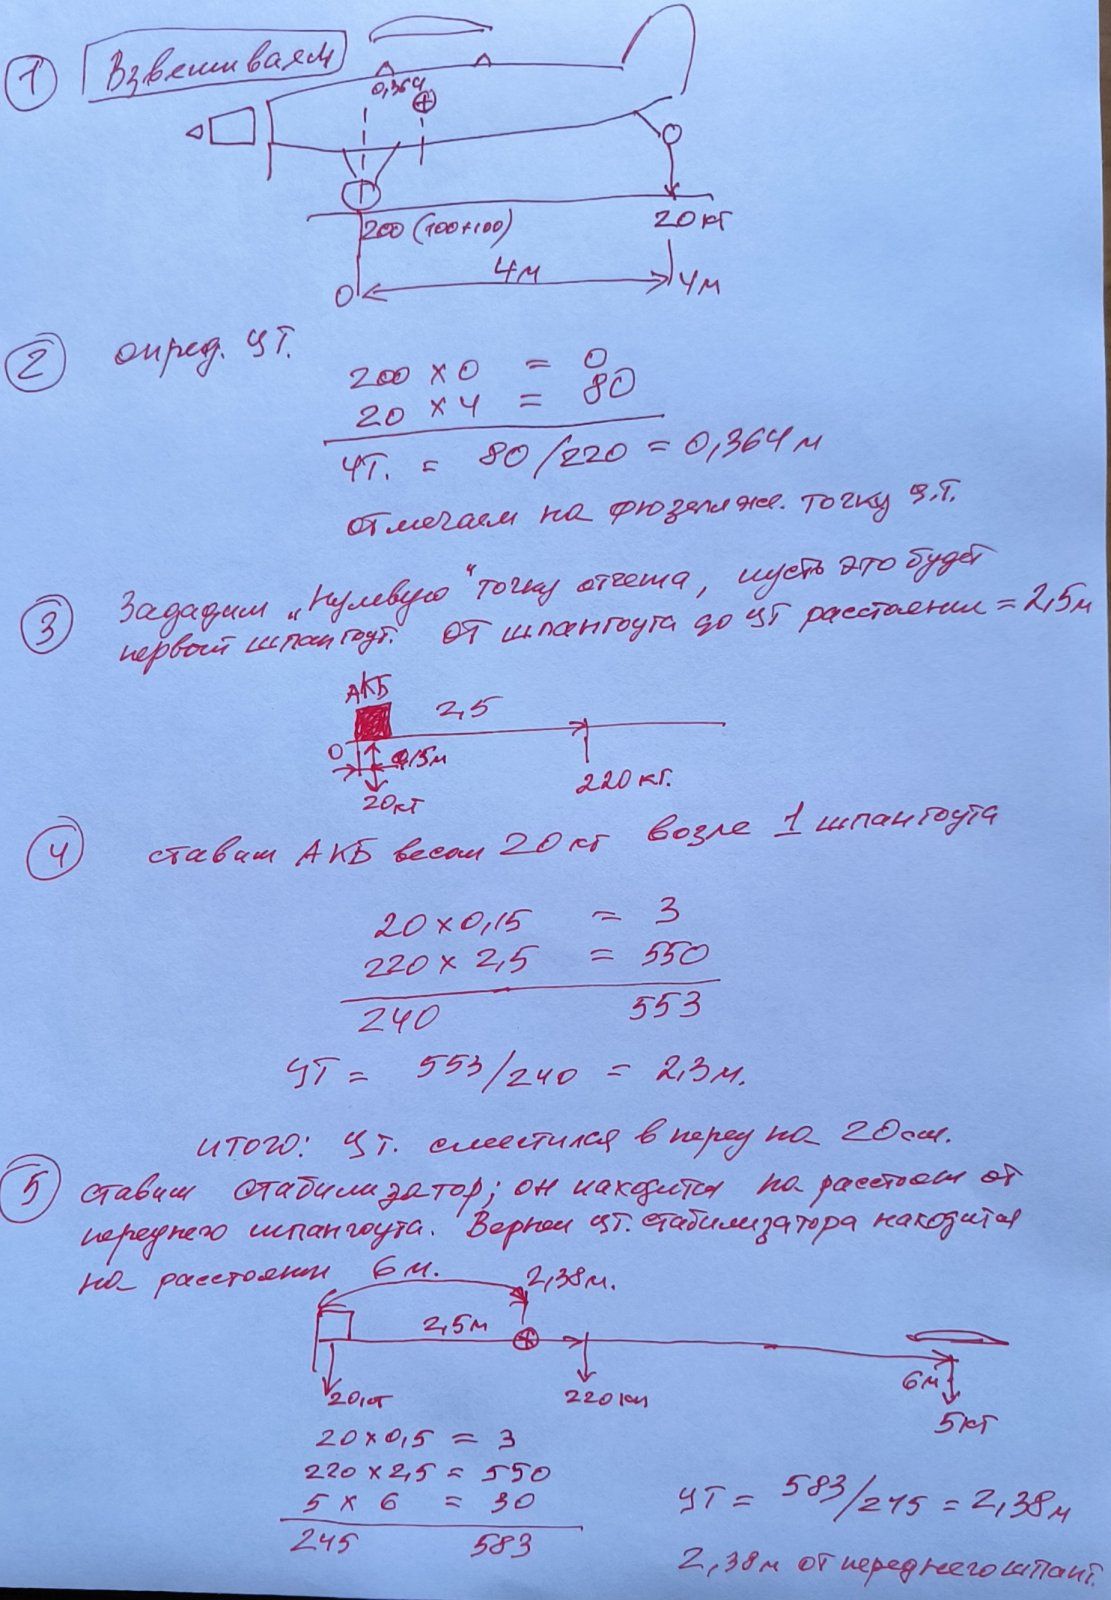 1 Взвешиваем
0,364
200 (100+100)
20 кг
0
4м
4м
2 опред. ЦТ.
200 × 0 = 0
20 × 4 = 80
ЦТ. = 80/220 = 0,364 м
отмечаем на фюзеляже. точку ц.т.
3 Зададим „Нулевую" точку отчета, пусть это будет
первый шпангоут. от шпангоута до ЦТ расстояние = 2,5м
АКБ
2,5
0
0,15м
20кг
220 кг.
4 ставим АКБ весом 20 кг возле 1 шпангоута
20 × 0,15 = 3
220 × 2,5 = 550
240 553
ЦТ = 553/240 = 2,3 м.
итого: ЦТ. сместился вперед на 20 см.
5 ставим стабилизатор; он находится на расстоян от
переднего шпангоута. Вернее ЦТ. стабилизатора находится
на расстоянии 6 м.
2,38 м.
2,5м
20 кг
220 кг
6м
5кг
20 × 0,5 = 3
220 × 2,5 = 550
5 × 6 = 30
245 583
ЦТ = 583/245 = 2,38м
2,38м от переднего шпанг.